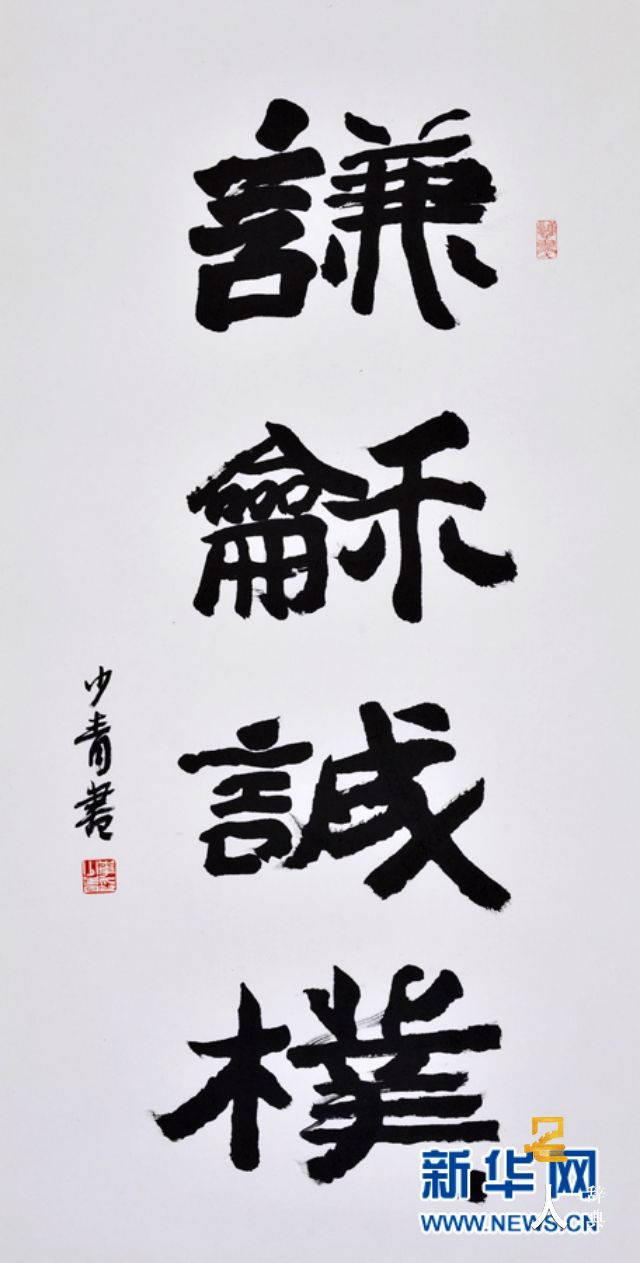 謙龢誠樸
少青書
新华网
WWW.NEWS.CN
名人
辞典